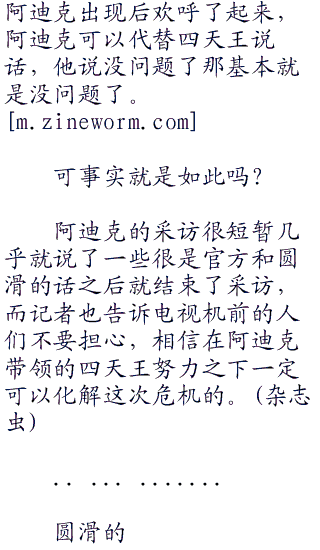 阿迪克出现后欢呼了起来，
阿迪克可以代替四天王说
话，他说没问题了那基本就
是没问题了。
[m.zineworm.com]
可事实就是如此吗？
阿迪克的采访很短暂几
乎就说了一些很是官方和圆
滑的话之后就结束了采访，
而记者也告诉电视机前的人
们不要担心，相信在阿迪克
带领的四天王努力之下一定
可以化解这次危机的。(杂志
虫)
.. ... .......
圆滑的